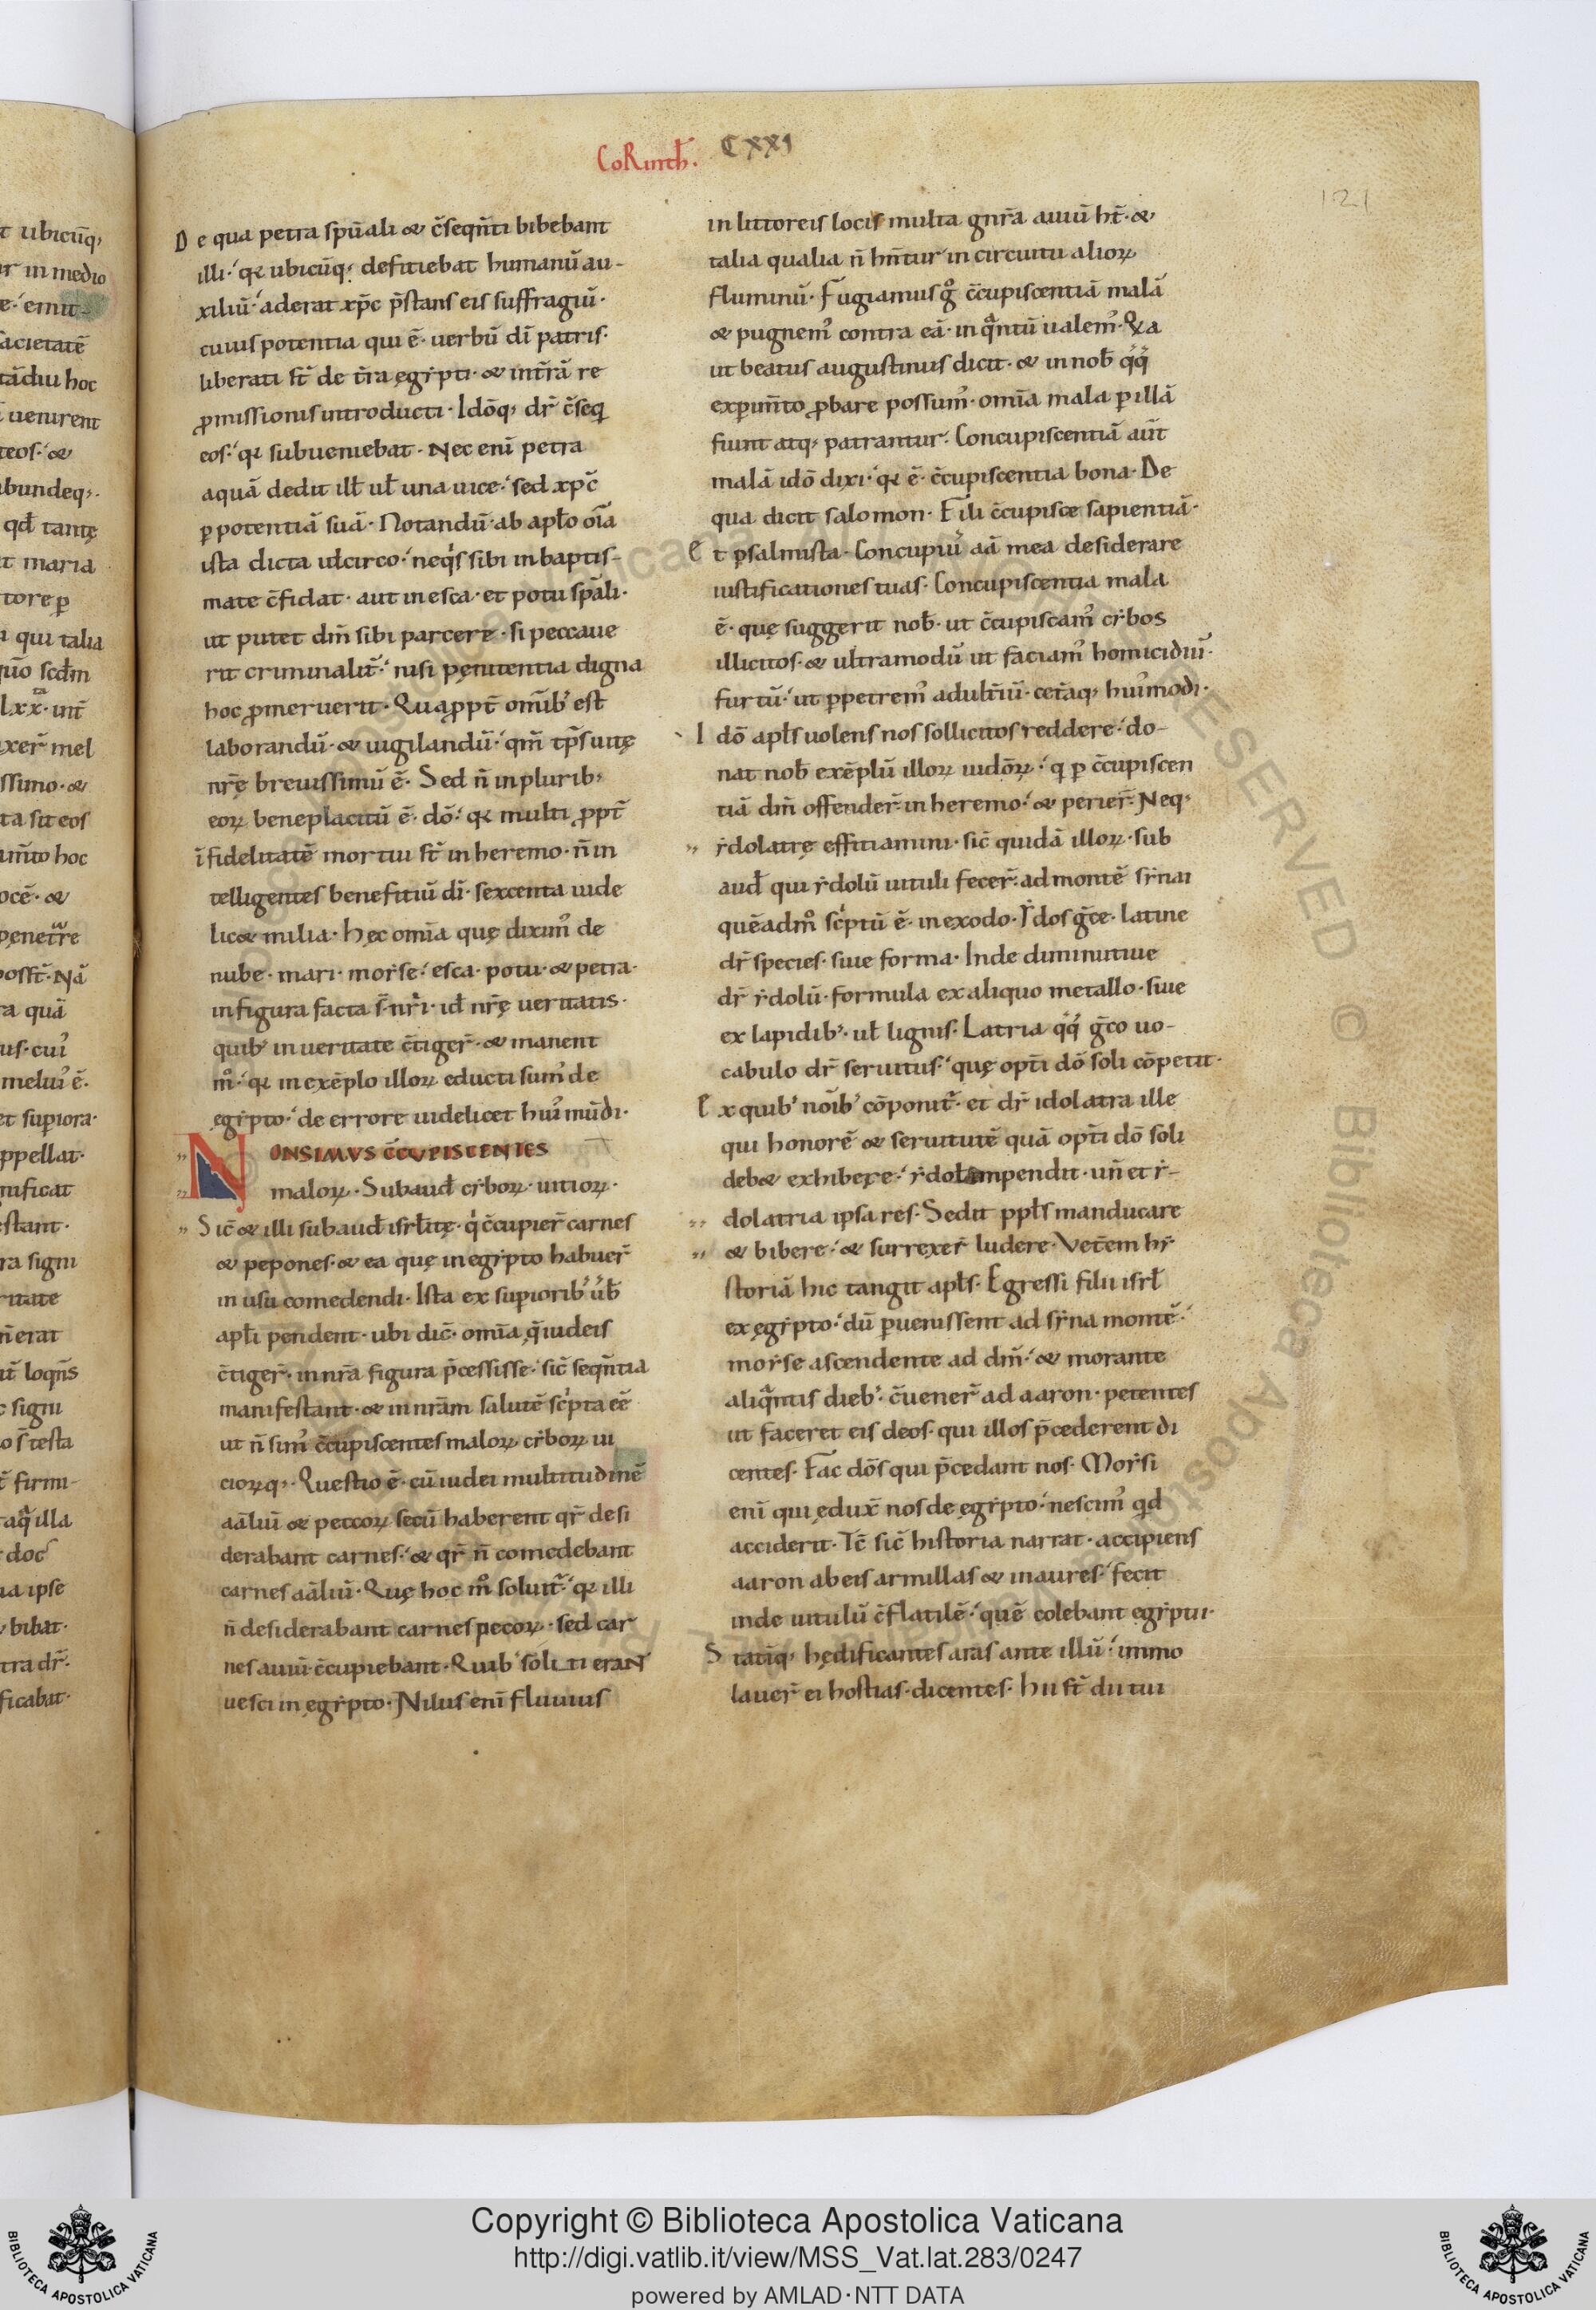 CoRinth̄. CXXI
121
De qua petra spūali & c̄seqn̄ti bibebant
illi·' qr ubicūq; defitiebat humanū au-
xiliū·' aderat xp̄c p̄stans eis suffragiū·
cuius potentia qui ē· uerbū dī patris·
liberati st̄ de tr̄a ęgẏpti· & int̄rā re
ꝓmissionis introducti· Idōq; dr̄ c̄seq
eos·' qr subueniebat· Nec enī petra
aquā dedit ill̄ ul̄ una uice·' sed xpc̄
ꝑ potentiā suā· Notandū· ab apl̄o oīa
ista dicta idcirco·' neq's sibi in baptis-
mate c̄fidat· aut in esca· et potu spāli·
ut putet dm̄ sibi parcere· si peccaue
rit criminalit̄·' nisi pęnitentia digna
hoc ꝓmeruerit· Quaꝓpt̄ omīb' est
laborandū· & uigilandū·' qm̄ tp̄s uitę
nr̄ę breuissimū ē· Sed n̄ in plurib;
eoꝝ beneplacitū ē· dō·' qr multi ꝓpt̄
īfidelitatē mortui st̄ in heremo· n̄ in
telligentes benefitiū dī· sexcenta uide
lic& milia· hęc omīa quę dixim' de
nube· mari· moẏse·' esca· potu· & petra·
in figura facta s̄ nr̄i· id nr̄ę ueritatis·
quib' in ueritate c̄tiger̄· & manent
m°·' qr in exēplo illoꝝ educti sum' de
egẏpto·' de errore uidelicet hui' mūdi·
NON SIMVS C̄CVPISCENTES
maloꝝ· Subaud̄ cẏboꝝ· uitioꝝ·
Sic̄ & illi subaud̄ isrl̄itę· q' c̄cupier̄ carnes
& pepones· & ea quę in egẏpto habuer̄
in usu comedendi· Ista ex supiorib' úb̄
apl̄i pendent· ubi dic̄· omīa q̄ iudeis
c̄tiger̄· in nr̄a figura p̄cessisse·' sic̄ seqn̄tia
manifestant· & in nrām salutē sc'pta eē
ut n̄ sim' c̄cupiscentes maloꝝ cẏboꝝ ui
cioꝝq;· Questio ē· cū iudei multitudinē
aālīu & peccoꝝ secū haberent qr̄ desi
derabant carnes·' & qr̄ n̄ comedebant
carnes aālīu· Quę hoc m° soluit̄·' qr illi
n̄ desiderabant carnes pecoꝝ· sed car
nes auiū c̄cupiebant· Quib' soliti eraN
uesci in egẏpto· Nilus enī fluuius
in littoreis locis multa gnr̄a auiū ht̄· &
talia qualia n̄ hn̄tur in circuitu alioꝝ
fluminū· Fugiamus g° c̄cupiscentiā malā
& pugnem' contra eā· in qāntū ualem'· & a
ut beatus augustinus dicit· & in nob̄ q'q'
experim̄to ꝓbare possum'· omīa mala ꝑ illā
fiunt atq; patrantur· Concupiscentiā aūt
malā idō dixi·' qr ē· c̄cupiscentia bona· De
qua dicit salomon· Fili c̄cupisce sapientiā·
Et psalmista· Concupiu' aā mea desiderare
iustificationes tuas· Concupiscentia mala
ē· quę suggerit nob̄· ut c̄cupiscam' cẏbos
illicitos· & ultra modū ut faciam' homicidiū·
furtū·' ut ꝑpetrem' adult̄iū· cet̄aq; hui'modi·
Idō apl̄s uolens nos sollicitos reddere·' do-
nat nob̄ exēplū illoꝝ iudōꝝ·' q ꝑ c̄cupiscen
tiā dm̄ offender̄ in heremo·' & perier̄· Neq;
ẏdolatrę effitiamini· sic̄ quidā illoꝝ· sub
aud̄ qui ẏdolū uituli fecer̄ ad montē sẏnai
quēadm° sc'ptū ē· in exodo· Ẏdos gc̄e· latine
dr̄ species· siue forma· Inde diminutiue
dr̄ ẏdolū· formula ex aliquo metallo· siue
ex lapidib'· ul̄ lignis· Latria q'q' gc̄o uo-
cabulo dr̄ seruitus·' quę opt̄i dō soli cōpetit·
Ex quib' noīb' cōponit̄· et dr̄ idolatra ille
qui honorē & seruitutē quā opt̄i dō soli
deb& exhibere·' ẏdol̄ impendit· un̄ et ẏ-
dolatria ipsa res· Sedit ppl̄s manducare
& bibere·' & surrexer̄ ludere· Vet̄em hẏ
storiā hic tangit apl̄s· Egressi filii isrl̄
ex ęgẏpto·' dū ꝑuenissent ad sẏna montē·'
moẏse ascendente ad dm̄·' & morante
aliqāntis dieb'· c̄uener̄ ad aaron· petentes
ut faceret eis deos· qui illos p̄cederent di
centes· Fac dōs qui p̄cedant nos· Moẏsi
enī qui ędux̄ nos de ęgẏpto·' nescim' qd
acciderit· Tc̄ sic̄ historia narrat· accipiens
aaron ab eis armillas & inaures·' fecit
inde uitulū c̄flatilē·' quē colebant egẏptii·
Statīq; hędificantes aras ante illū·' immo
lauer̄ ei hostias· dicentes· Hii st̄ dii tui
Copyright © Biblioteca Apostolica Vaticana
http://digi.vatlib.it/view/MSS_Vat.lat.283/0247
powered by AMLAD·NTT DATA
BIBLIOTECA APOSTOLICA VATICANA
BIBLIOTECA APOSTOLICA VATICANA